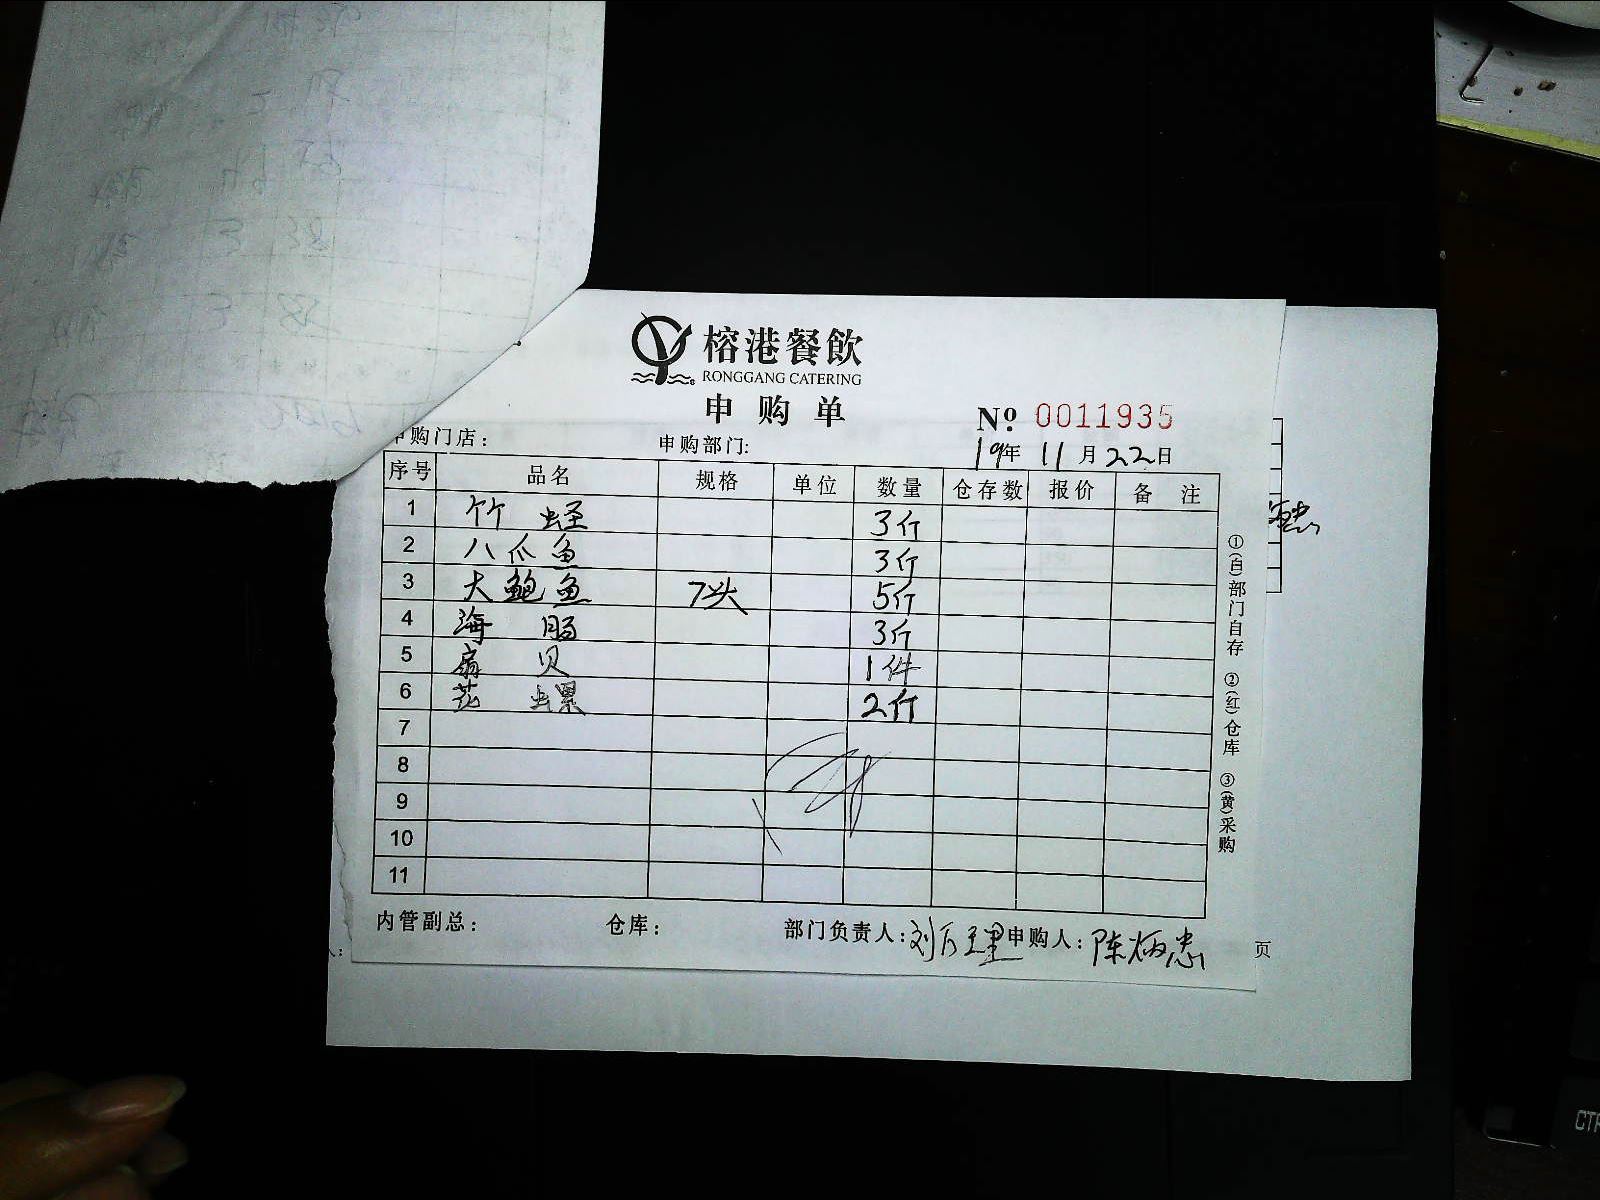 榕港餐飲
RONGGANG CATERING
申购单
No. 0011935
申购门店: 申购部门: 19年 11月 22日
序号 品名 规格 单位 数量 仓存数 报价 备注
1 竹蛏 3斤
2 八爪鱼 3斤
3 大鲍鱼 7头 5斤
4 海肠 3斤
5 扇贝 1件
6 花螺 2斤
7
8
9
10
11
内管副总: 仓库: 部门负责人: 申购人: 陈炳忠
①(白)部门自存 ②(红)仓库 ③(黄)采购
页
CTR